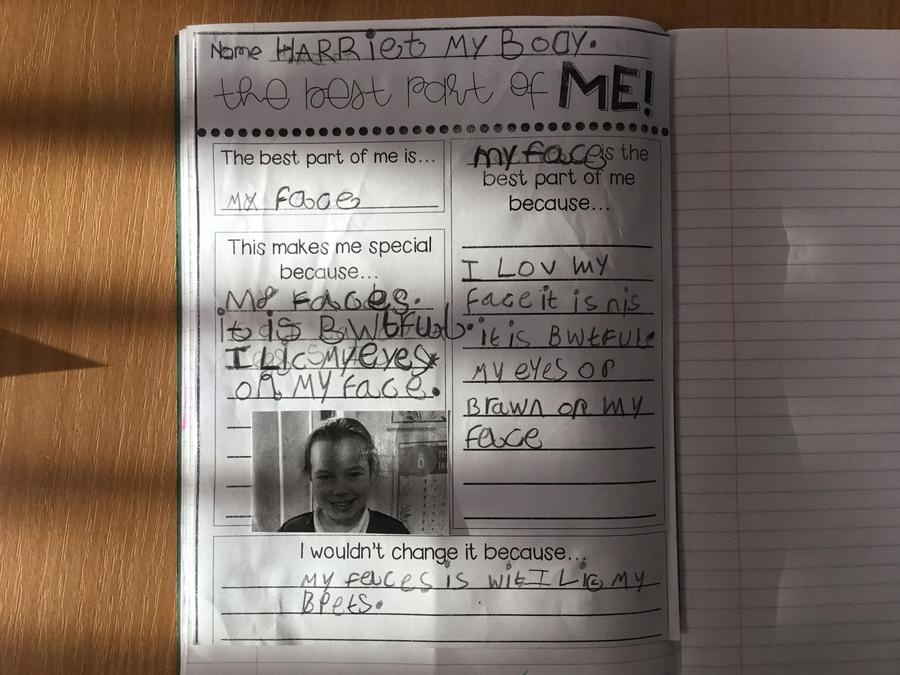 Name HARRiet MY BoDY.
the best part of ME!
The best part of me is...
MY face
This makes me special
because...
My Faces.
it is BWtFUL.
I Lic My eyes
on MY face.
my face is the
best part of me
because...
I Lov my
face it is nis
it is BWtFUL.
MY eyes op
Brawn on my
face
I wouldn't change it because...
my feuces is wit I Lic my
Bpets.